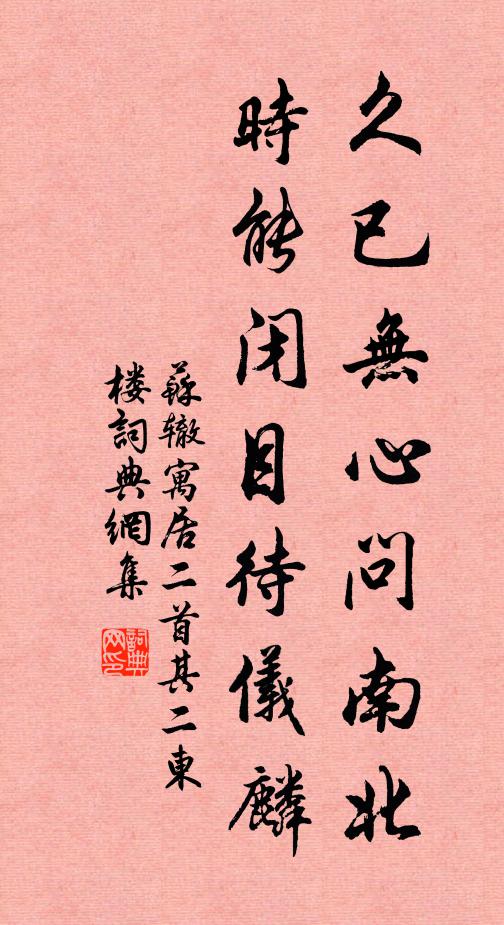 久已無心問南北
時能闭目待儀麟
蘇辙寓居二首其二東
楼詞典網集
詞典网印